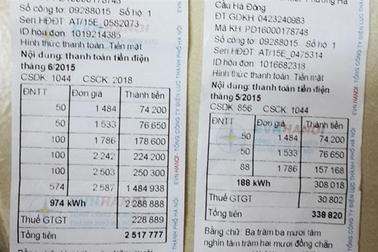 Số công tơ 09288015 Số hộ 1
Seri HĐĐT AT/15E 0582073
ID hóa đơn 1019214385
Hình thức thanh toán. Tiền mặt
Nội dung: thanh toán tiền điện
tháng 6/2015
CSDK 1044 CSCK 2018
ĐNTT Đơn giá Thành tiền
50 1 484 74 200
50 1 533 76 650
100 1 786 178 600
100 2 242 224 200
100 2 503 250 300
574 2 587 1 484 938
974 kWh 2 288 888
Thuế GTGT 228 889
Tổng tiền 2 517 777
Cầu Hà Đông
ĐT GDKH 0423240983
Mã KH PD16000175748
Số công tơ 09288015 Số hộ 1
Seri HĐĐT AT/15E 0475314
ID hóa đơn 1016682318
Hình thức thanh toán: Tiền mặt
Nội dung: thanh toán tiền điện
tháng 5/2015
CSDK 856 CSCK 1044
ĐNTT Đơn giá Thành tiền
50 1 484 74 200
50 1 533 76 650
88 1 786 157 168
188 kWh 308 018
Thuế GTGT 30 802
Tổng tiền 338 820
Bằng chữ: Ba trăm ba mươi tám
nghìn tám trăm hai mươi đồng chẵn
EVN HANOI TỔNG CÔNG TY ĐIỆN LỰC THÀNH PHỐ HÀ NỘI